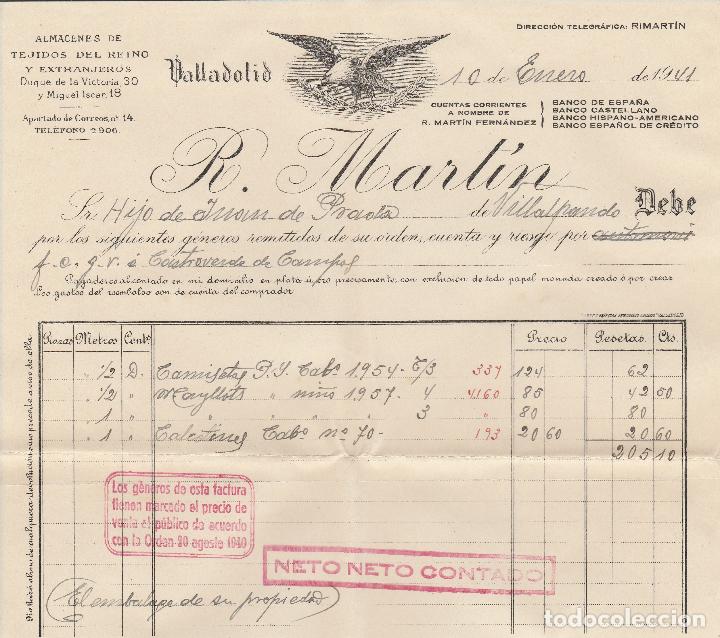 ALMACENES DE
TEJIDOS DEL REINO
Y EXTRANJEROS
Duque de la Victoria, 30
y Miguel Iscar, 18
Apartado de Correos, nº 14.
TELÉFONO 2906.
DIRECCIÓN TELEGRÁFICA: RIMARTÍN
Valladolid 10 de Enero de 1941
CUENTAS CORRIENTES
A NOMBRE DE
R. MARTÍN FERNÁNDEZ
BANCO DE ESPAÑA
BANCO CASTELLANO
BANCO HISPANO-AMERICANO
BANCO ESPAÑOL DE CRÉDITO
R. Martín
Sr. Hijo de Juan de Prada de Villalpando Debe
por los siguientes géneros remitidos de su orden, cuenta y riesgo por
f. c. g. v. é Castroverde de Campos
Pagaderos al contado en mi domicilio en plata ú oro precisamente, con exclusión de todo papel moneda creado ó por crear
Los gastos del reembolso son de cuenta del comprador
Piezas Metros Cents. Precio Pesetas Cts.
" 1/2 D. Camisetas P. Y. Cabº 1954 - T/3 337 124 62
" 1/2 " Mayllots " niño 1957. 4 4160 85 42 50
" 1 " " " " " 3 " 80 80
" 1 " Calcetines Cabº nº 70 - 193 20 60 20 60
205 10
Los géneros de esta factura
tienen marcado el precio de
venta al público de acuerdo
con la Orden 20 agosto 1940
NETO NETO CONTADO
(El embalage de su propiedad)
todocoleccion